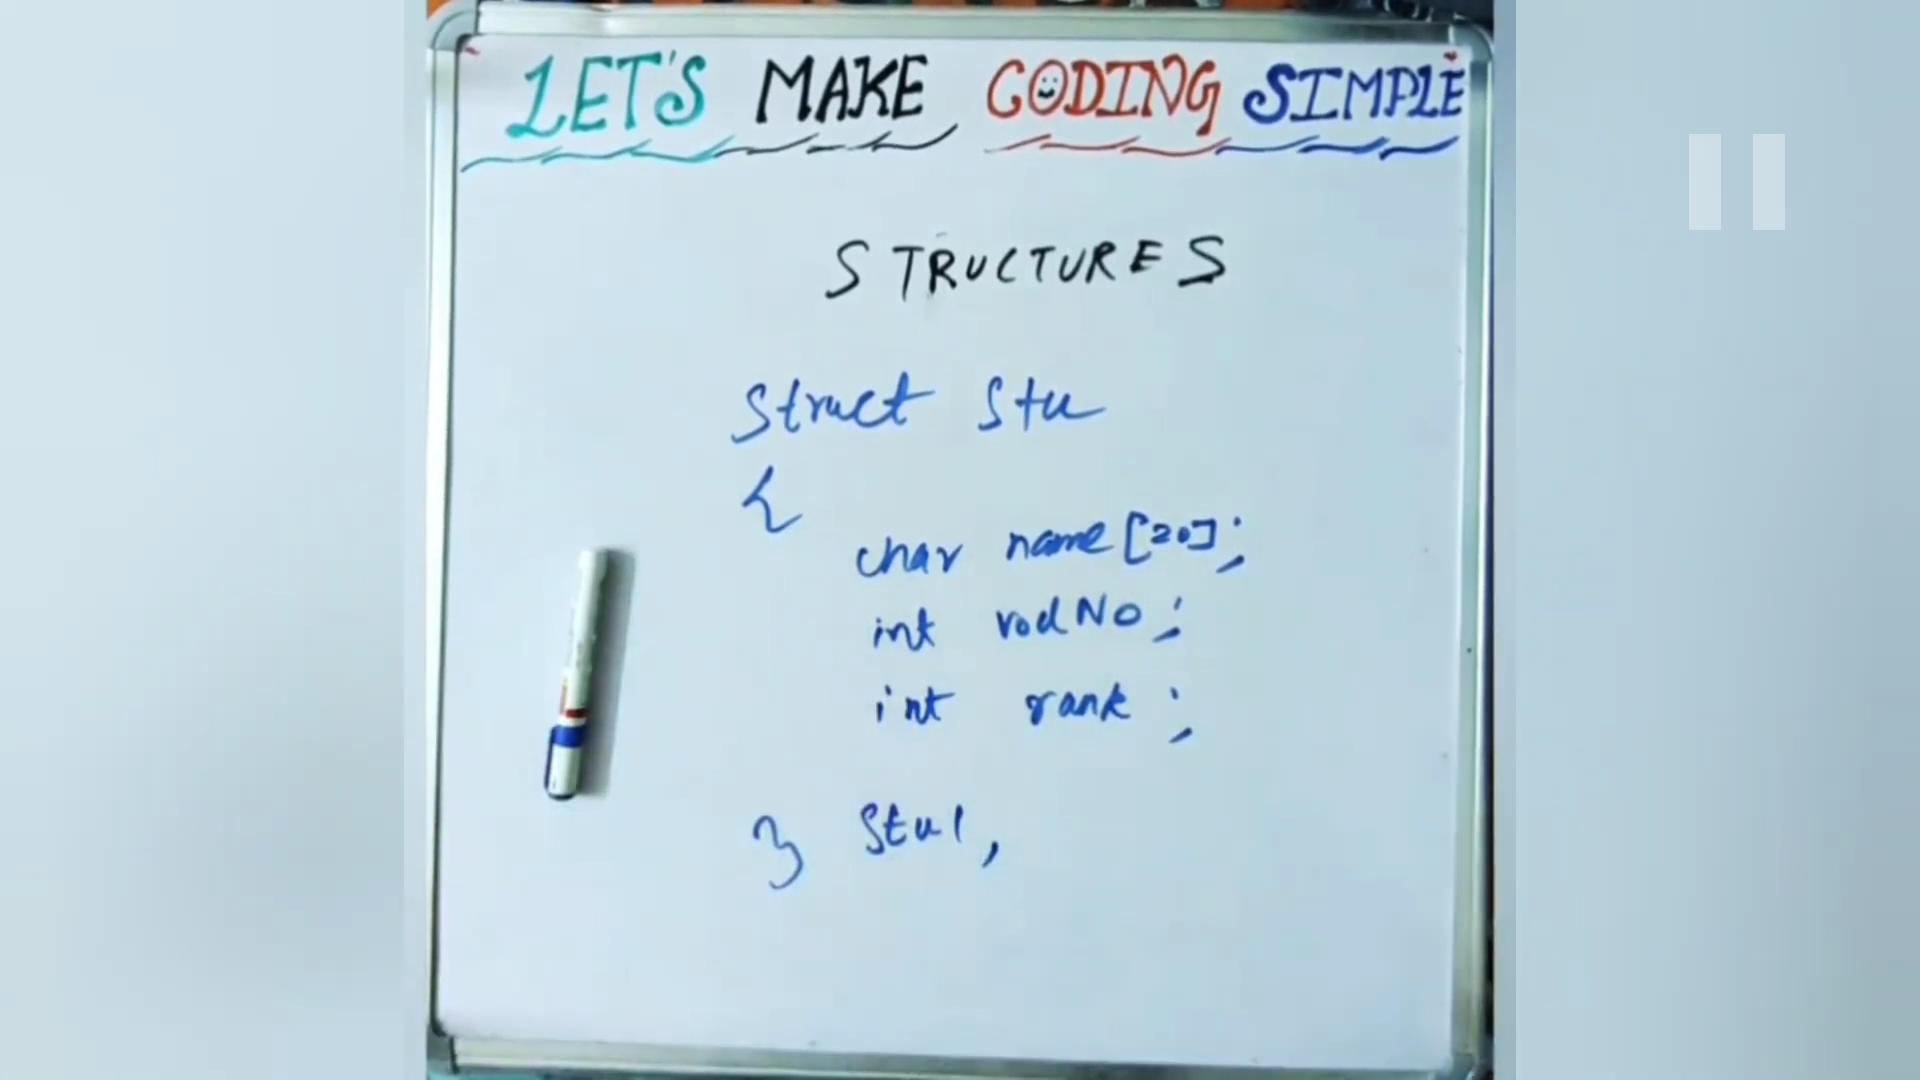 LET'S MAKE CODING SIMPLE
STRUCTURES
Struct Stu
{
char name[20];
int rollNo;
int rank;
} Stu1,